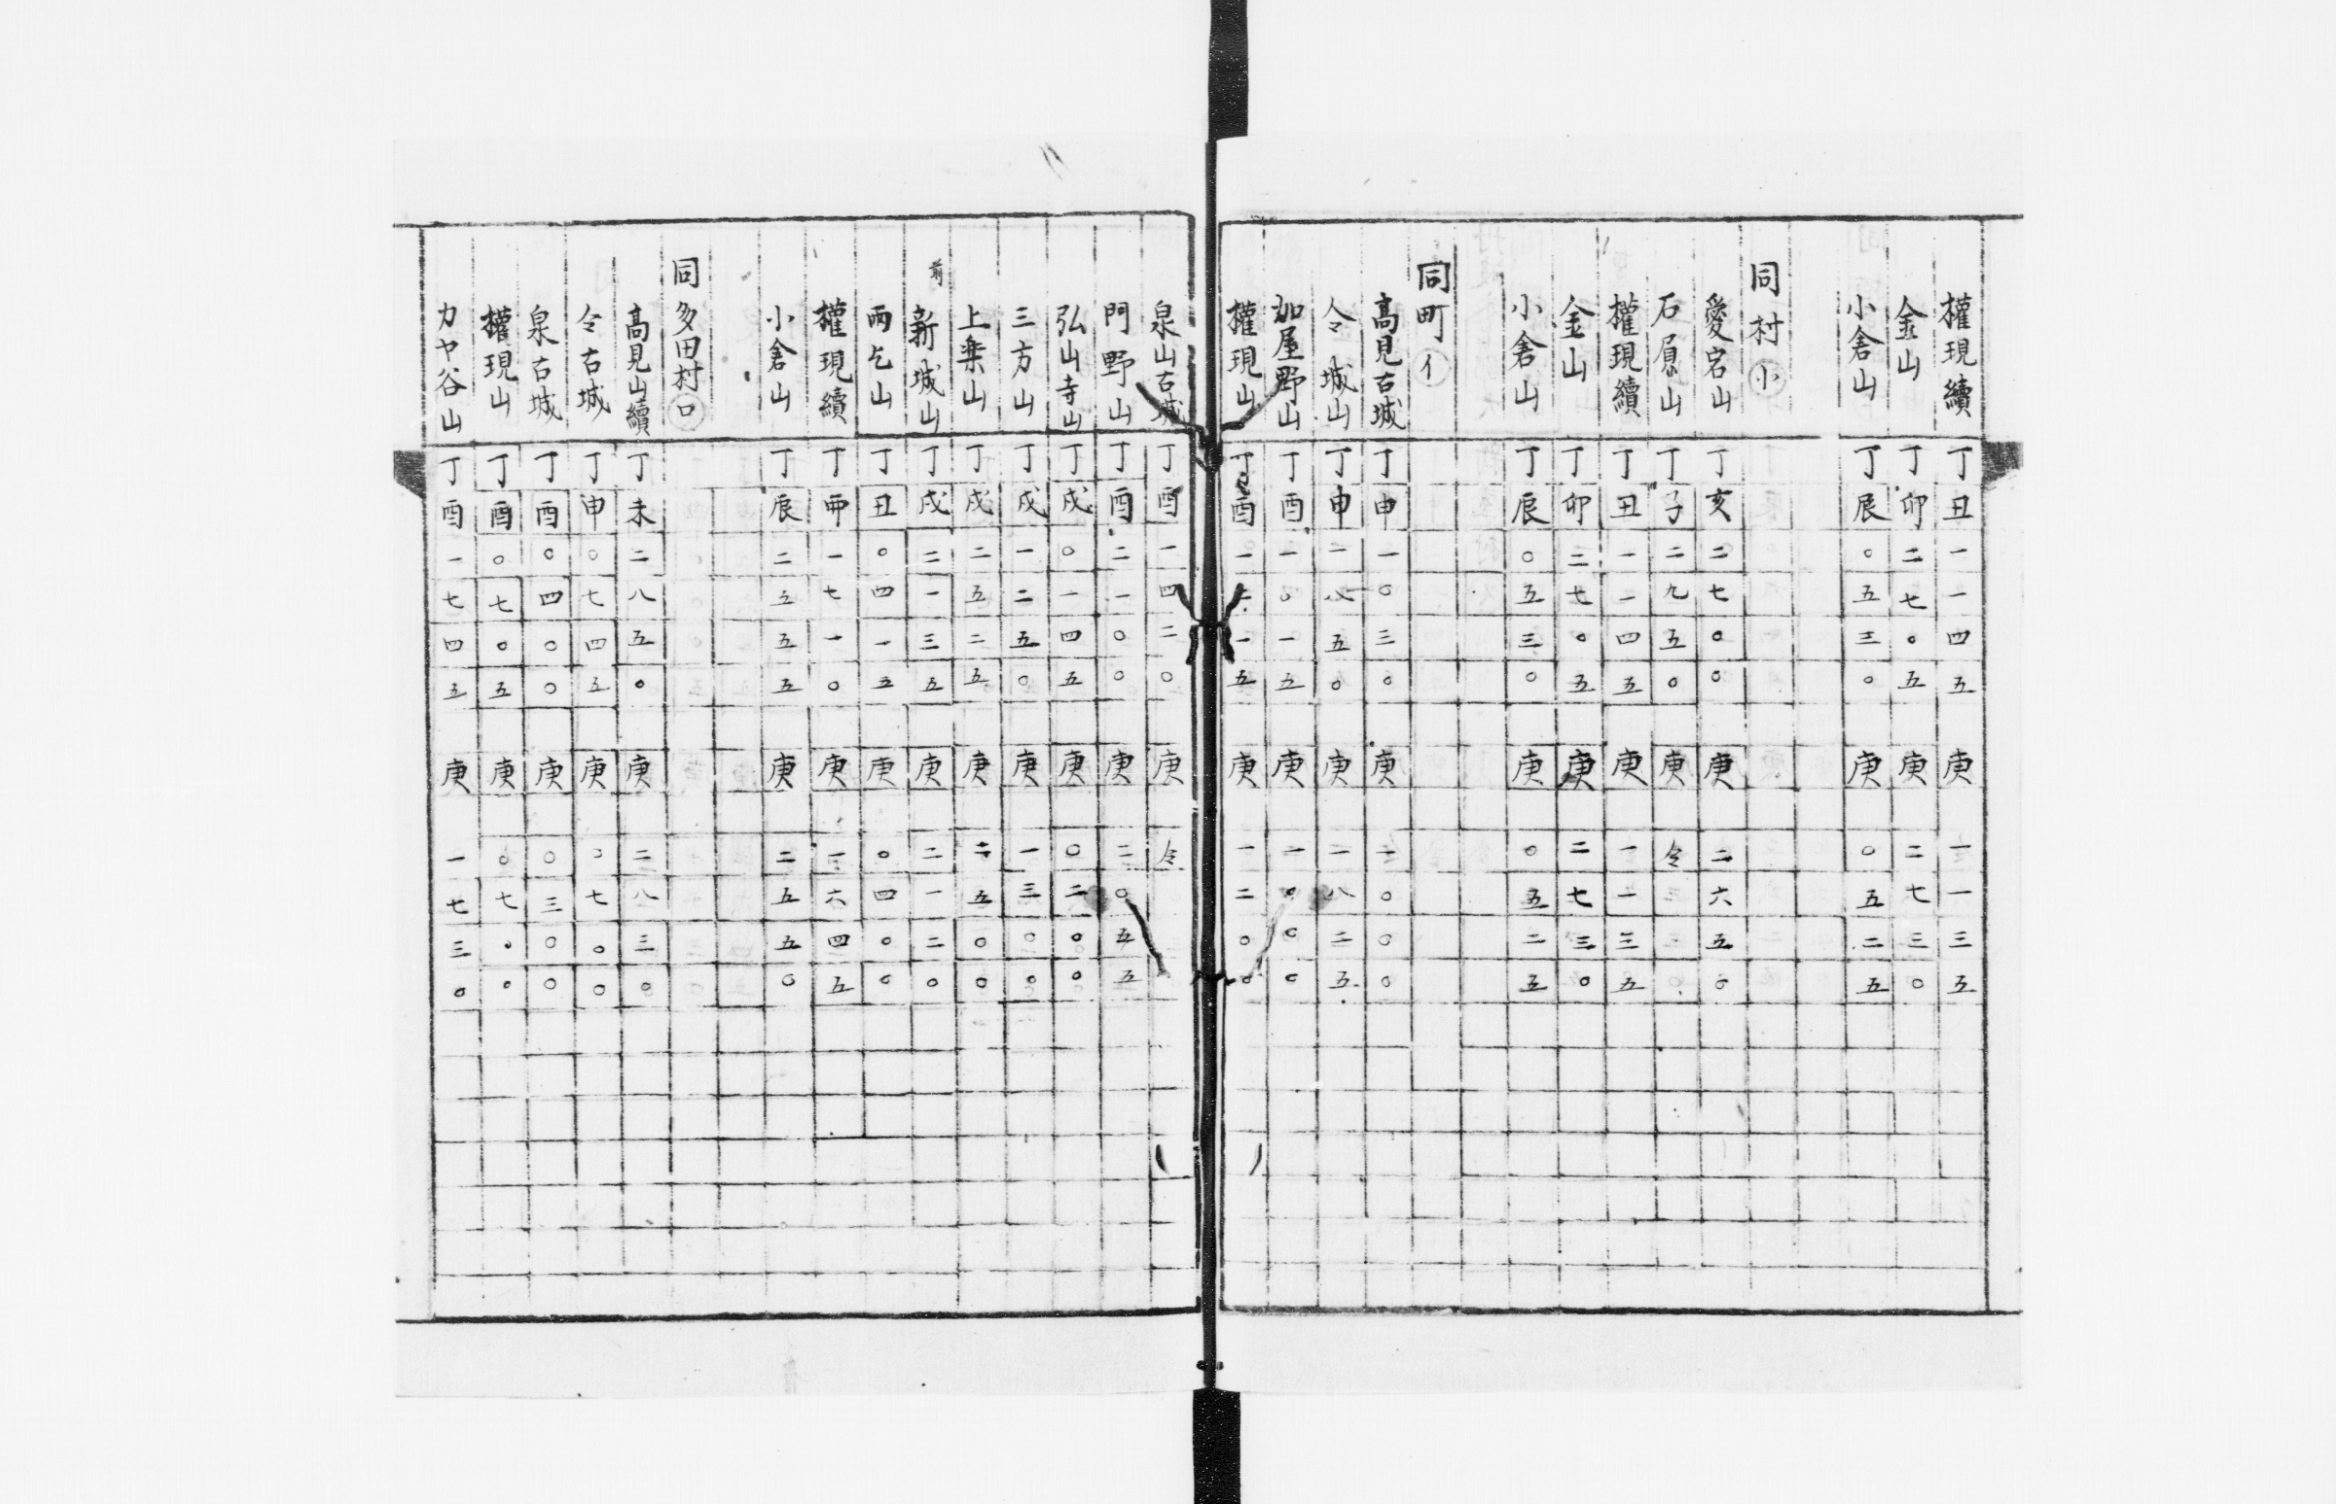 權現續丁丑一一四五庚一一三五
金山丁卯二七〇五庚二七三〇
小倉山丁辰〇五三〇庚〇五二五
同村㋭
愛宕山丁亥二七〇〇庚二六五〇
石原山丁子二九五〇庚仝
權現續丁丑一一四五庚一一三五
金山丁卯二七〇五庚二七三〇
小倉山丁辰〇五三〇庚〇五二五
同町㋑
高見古城丁申一〇三〇庚一〇〇〇
今城山丁申一八五〇庚一八二五
加屋野山丁酉一〇一五庚一〇〇〇
權現山丁酉一二一五庚一二〇〇
泉山古城丁酉一四二〇庚仝
門野山丁酉二一〇〇庚二〇五五
弘山寺山丁戌〇一四五庚〇二〇〇
三方山丁戌一二五〇庚一三〇〇
上乗山丁戌二五二五庚二五〇〇
前新城山丁戌二一三五庚二一二〇
西乞山丁丑〇四一五庚〇四〇〇
權現續丁卯一七一〇庚一六四五
小倉山丁辰二五五五庚二五五〇
同多田村㋺
高見山續丁未二八五〇庚二八三〇
今古城丁申〇七四五庚〇七〇〇
泉古城丁酉〇四〇〇庚〇三〇〇
權現山丁酉〇七〇五庚〇七〇〇
カヤ谷山丁酉一七四五庚一七三〇